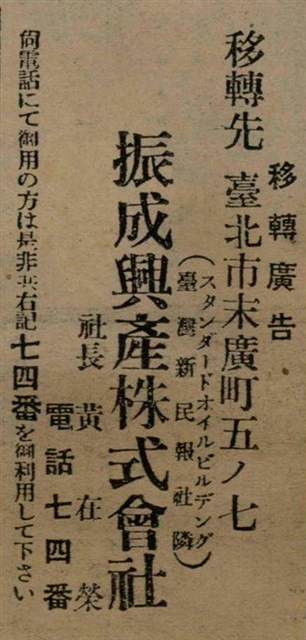 移轉廣告
移轉先 臺北市末廣町五ノ七
(スタンダードオイルビルデング
臺灣新民報社隣)
振成興產株式會社
社長 黃在榮
電話七四番
尙電話にて御用の方は是非共右記七四番を御利用して下さい